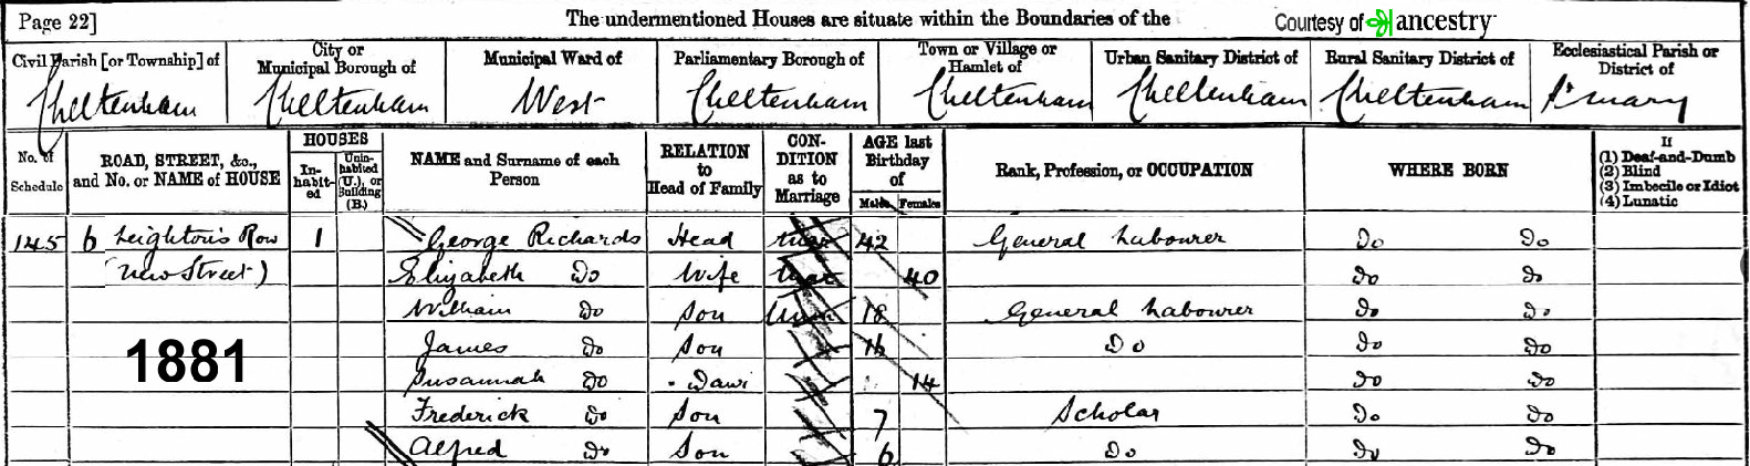 Page 22] The undermentioned Houses are situate within the Boundaries of the Courtesy of ancestry
Civil Parish [or Township] of City or Municipal Borough of Municipal Ward of Parliamentary Borough of Town or Village or Hamlet of Urban Sanitary District of Rural Sanitary District of Ecclesiastical Parish or District of
Cheltenham Cheltenham West Cheltenham Cheltenham Cheltenham Cheltenham St Mary
No. of Schedule ROAD, STREET, &c., and No. or NAME of HOUSE HOUSES Inhabited Uninhabited (U.), or Building (B.) NAME and Surname of each Person RELATION to Head of Family CONDITION as to Marriage AGE last Birthday of Males Females Rank, Profession, or OCCUPATION WHERE BORN If (1) Deaf-and-Dumb (2) Blind (3) Imbecile or Idiot (4) Lunatic
145 6 Leighton's Row 1 George Richards Head mar 42 General Labourer Do Do
(New Street) Elizabeth Do Wife mar 40 Do Do
William Do Son 18 General Labourer Do Do
James Do Son 16 Do Do Do
1881
Susannah Do Daur 14 Do Do
Frederick Do Son 7 Scholar Do Do
Alfred Do Son 6 Do Do Do